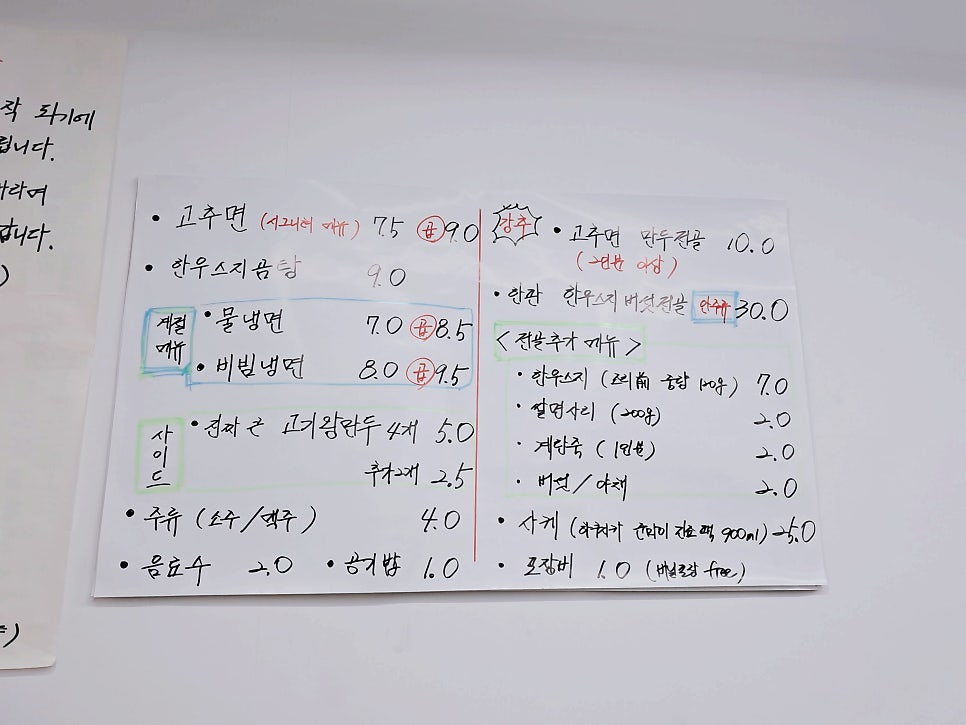 작 되기에
립니다.
바라며
합니다.
)
• 고추면 (시그니처 메뉴) 7.5 곱 9.0
• 한우스지곰탕 9.0
계절
메뉴
• 물냉면 7.0 곱 8.5
• 비빔냉면 8.0 곱 9.5
사
이
드
• 진짜 큰 고기왕만두 4개 5.0
추가2개 2.5
• 주류 (소주/맥주) 4.0
• 음료수 2.0 • 공기밥 1.0
강추
• 고추면 만두전골 10.0
(2인분 이상)
• 한판 한우스지버섯전골 안주류 30.0
<전골추가 메뉴>
• 한우스지 (조리前 중량 120g) 7.0
• 쌀면사리 (200g) 2.0
• 계란죽 (1인분) 2.0
• 버섯/야채 2.0
• 사케 (900ml) 25.0
• 포장비 1.0 (비닐포장 free)